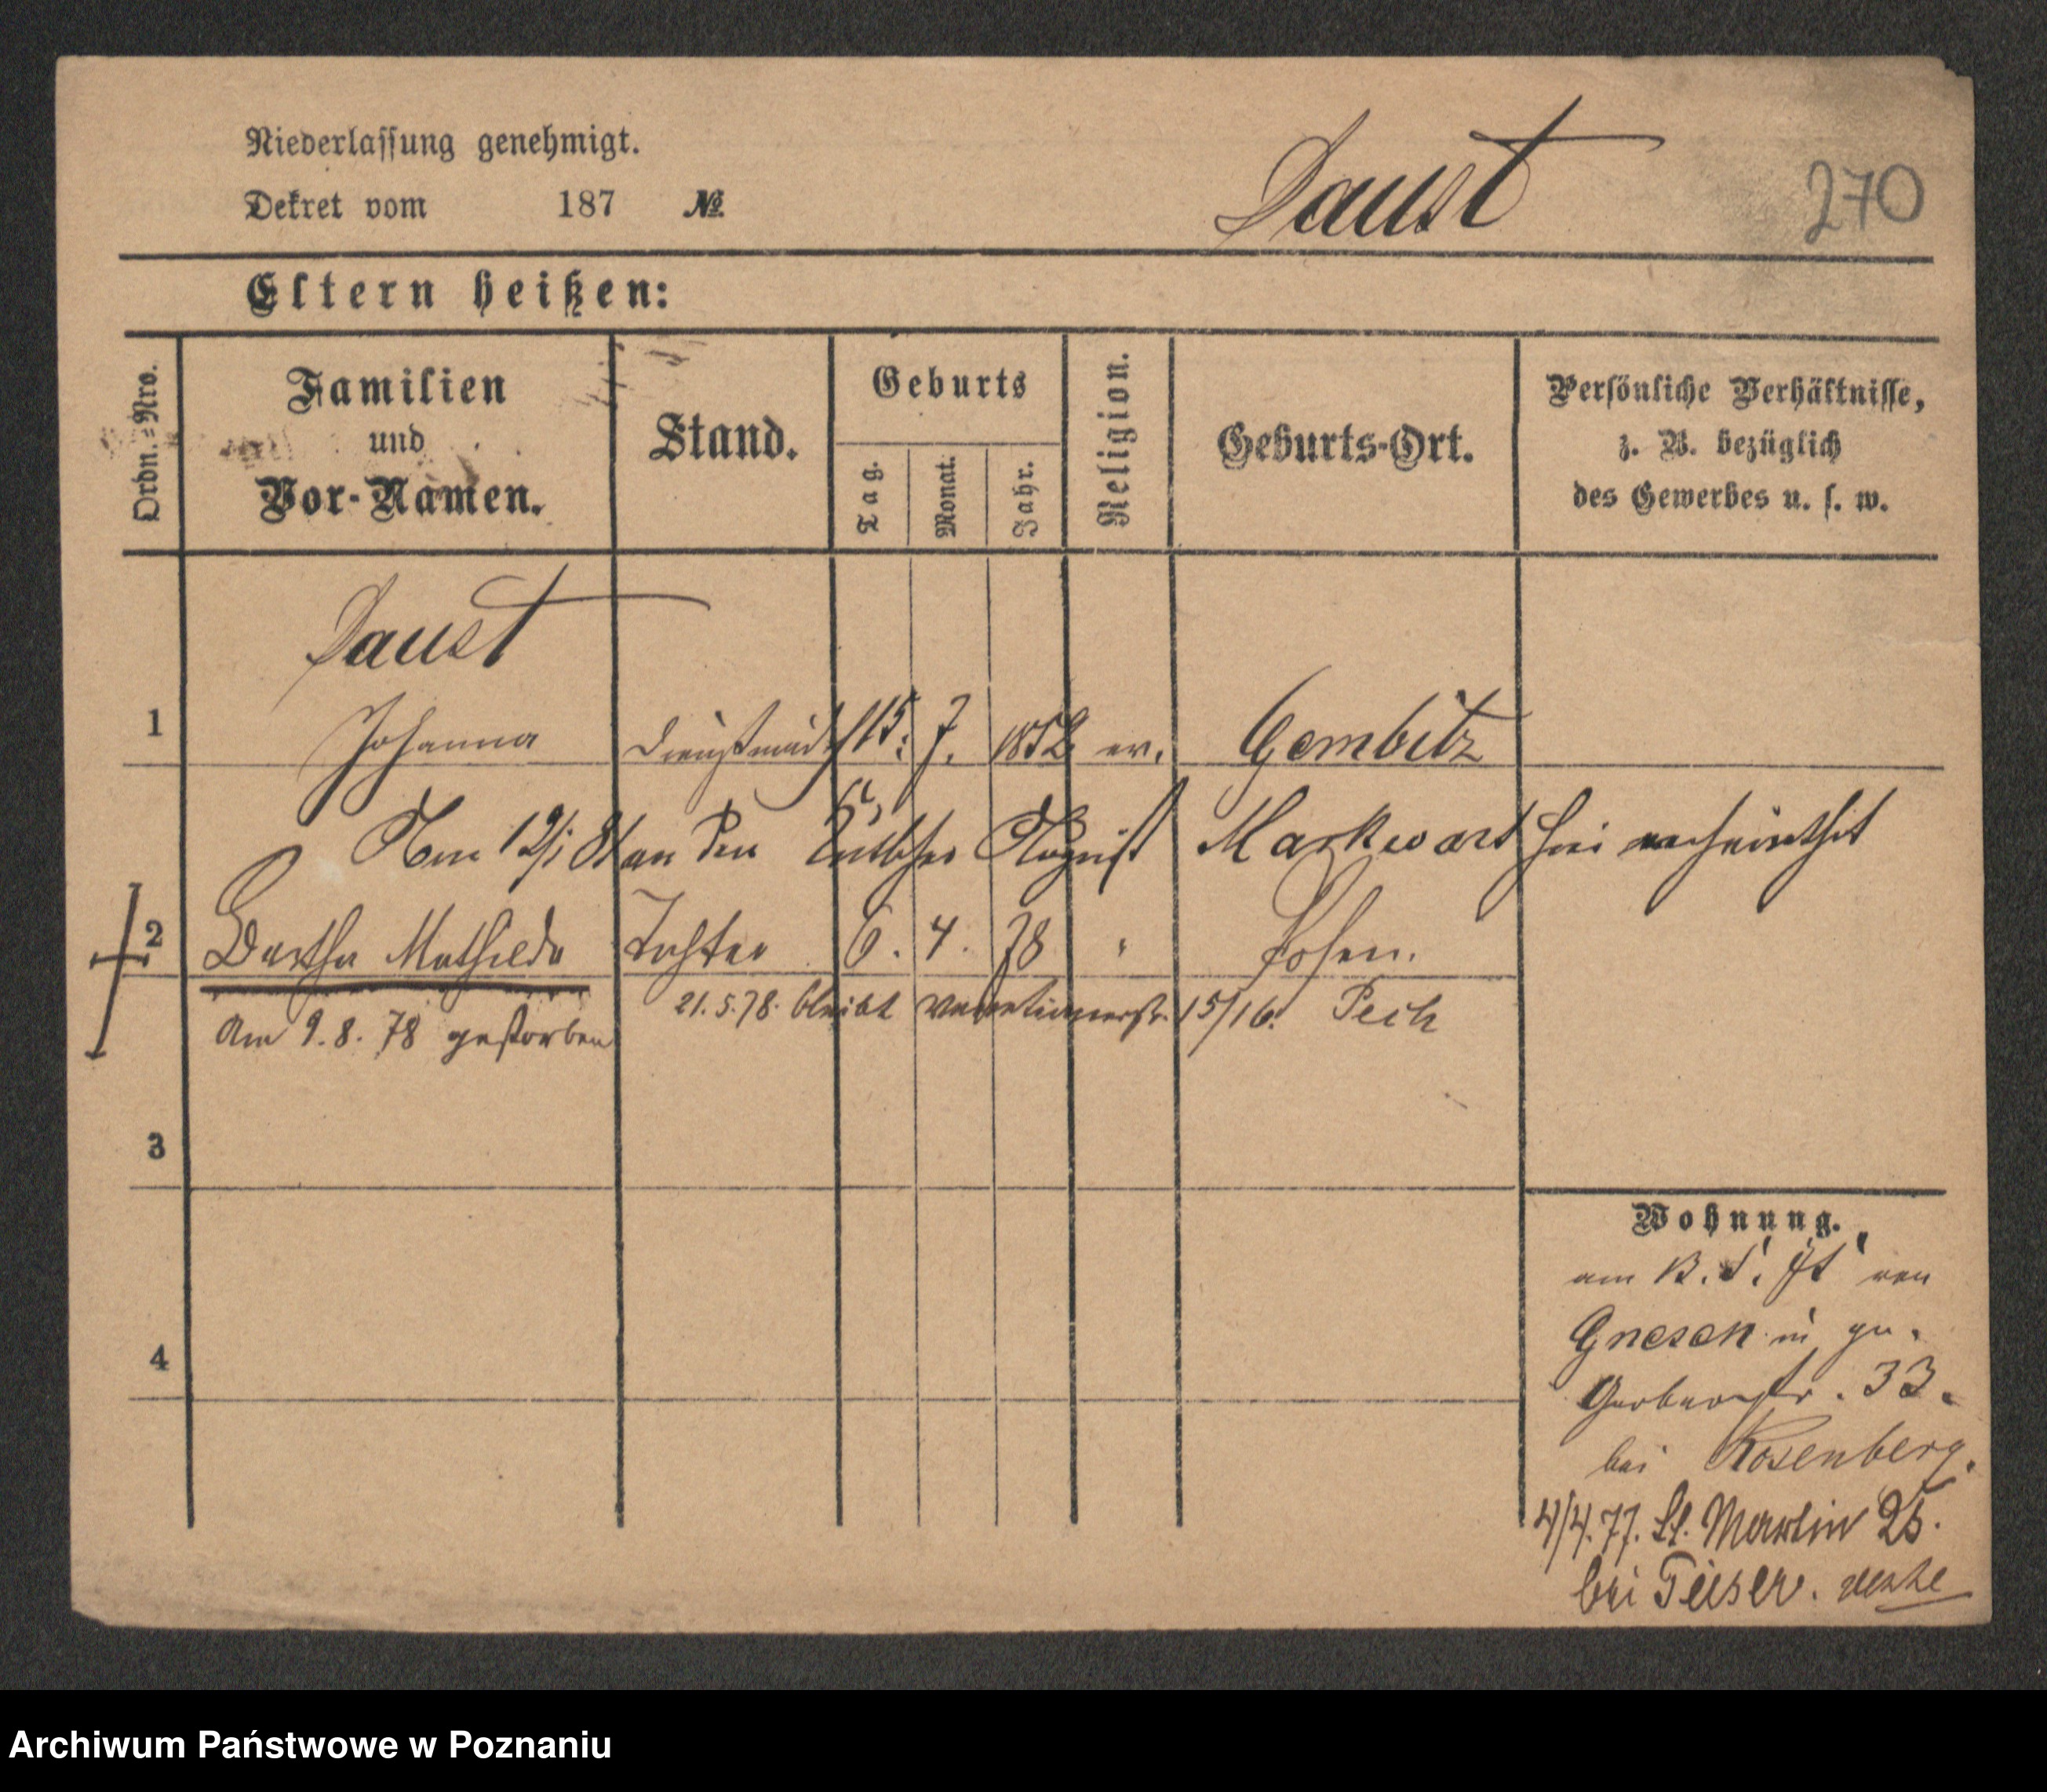 Niederlassung genehmigt.
Dekret vom 187 №
Daust
270
Eltern heißen:
Ordn.=Nro.
Familien
und
Vor-Namen.
Stand.
Geburts
Tag.
Monat.
Jahr.
Religion.
Geburts-Ort.
Persönliche Verhältnisse,
z. B. bezüglich
des Gewerbes u. s. w.
Daust
1 Johanna Dienstmädch 15. 7. 1852 ev. Gembitz
an den August Markwart verheirathet
2 Bertha Mathilde Tochter 6. 4. 78 " Posen.
21.5.78. bleibt Venetianerstr. 15/16.
Am 9.8.78 gestorben
3
4
Wohnung.
von
Gnesen in gr.
Gerberstr. 33.
bei Rosenberg.
4/4.77. St. Martin 25.
bei
Archiwum Państwowe w Poznaniu